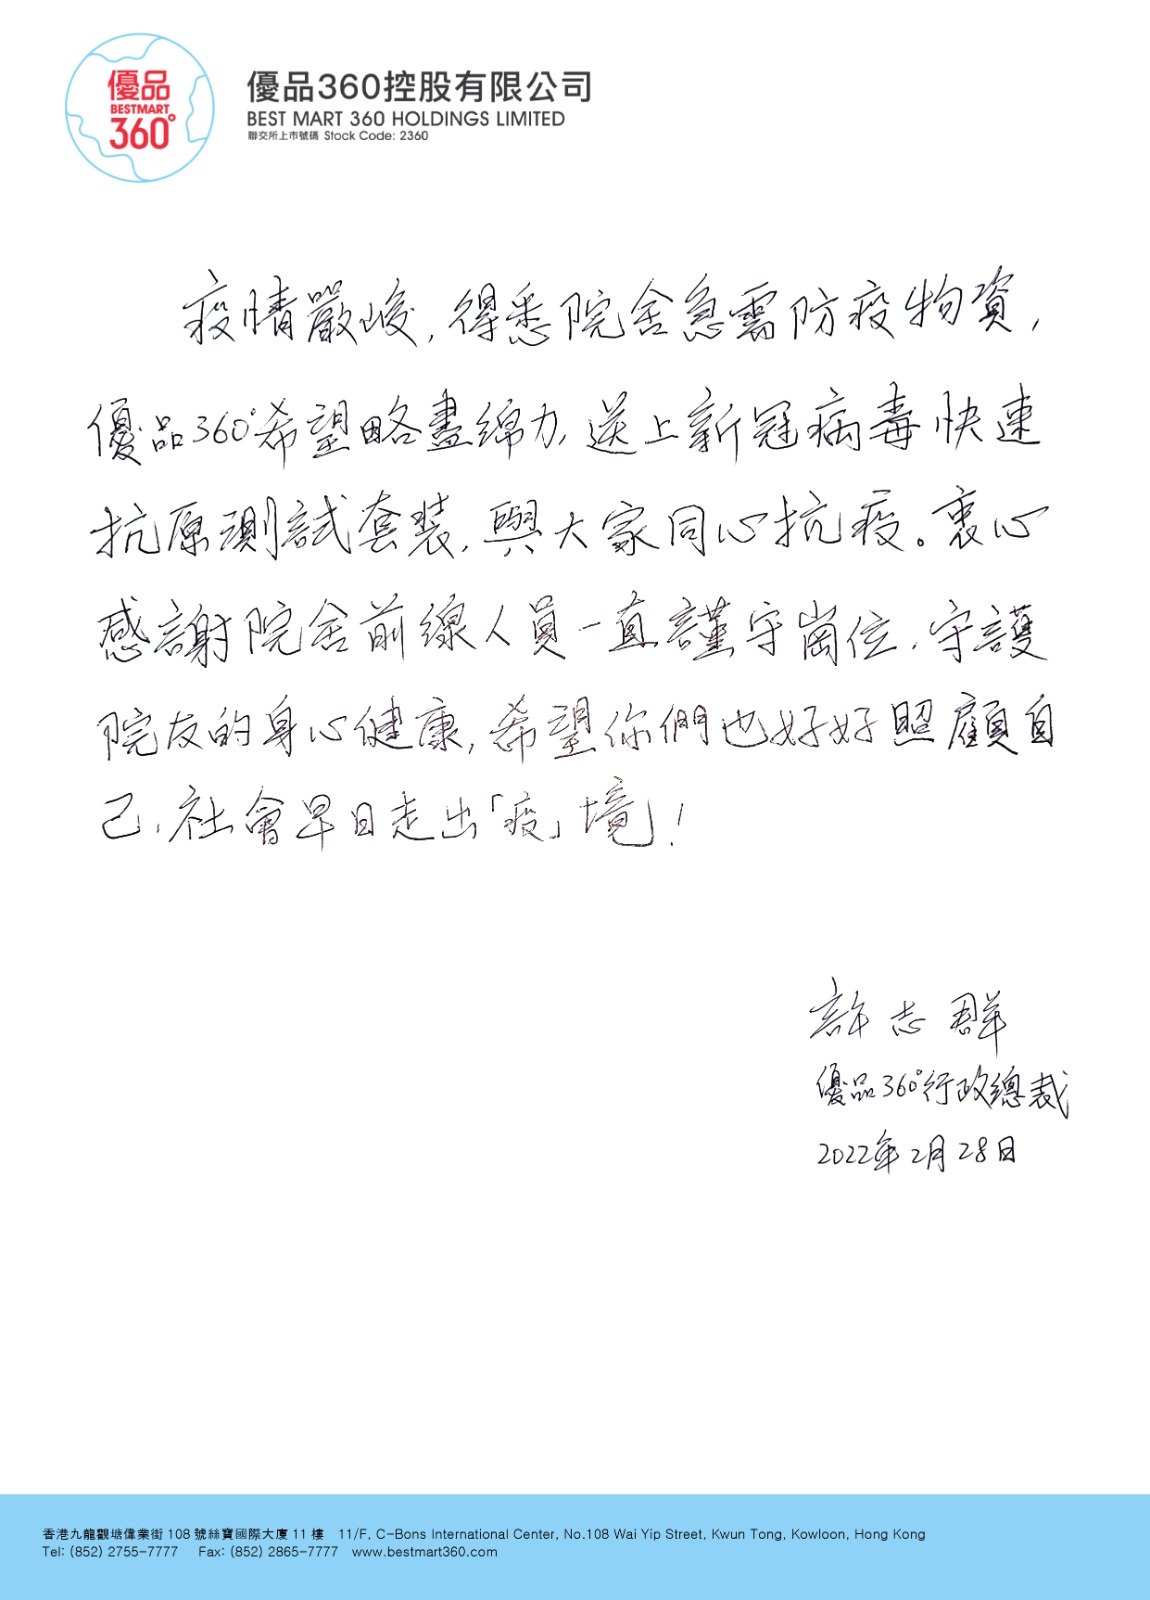 優品
BESTMART
360°
優品360控股有限公司
BEST MART 360 HOLDINGS LIMITED
聯交所上市號碼 Stock Code: 2360
疫情嚴峻，得悉院舍急需防疫物資，
優品360°希望略盡綿力，送上新冠病毒快速
抗原測試套裝，與大家同心抗疫。衷心
感謝院舍前線人員一直謹守崗位，守護
院友的身心健康，希望你們也好好照顧自
己，社會早日走出「疫」境！
許志群
優品360°行政總裁
2022年2月28日
香港九龍觀塘偉業街 108 號絲寶國際大廈 11 樓 11/F, C-Bons International Center, No.108 Wai Yip Street, Kwun Tong, Kowloon, Hong Kong
Tel: (852) 2755-7777 Fax: (852) 2865-7777 www.bestmart360.com